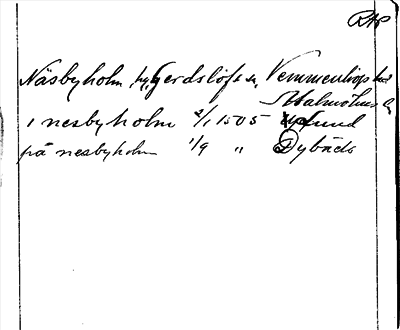 RAP
Näsbyholm, Gerdslöfs sn, Vemmenhögs hd
Malmöhus
i nesbyholm 2/1 1505 Lund
på nesbyholm 1/9 " Dybäck